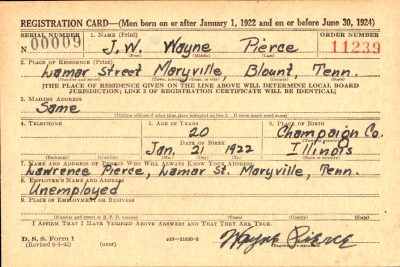 REGISTRATION CARD—(Men born on or after January 1, 1922 and on or before June 30, 1924)
SERIAL NUMBER 1. NAME (Print) ORDER NUMBER
N 00009 J. W. Wayne Pierce 11239
(First) (Middle) (Last)
2. PLACE OF RESIDENCE (Print)
Lamar Street Maryville, Blount, Tenn.
(Number and street) (Town, township, village, or city) (County) (State)
[THE PLACE OF RESIDENCE GIVEN ON THE LINE ABOVE WILL DETERMINE LOCAL BOARD
JURISDICTION; LINE 2 OF REGISTRATION CERTIFICATE WILL BE IDENTICAL]
3. MAILING ADDRESS
Same
(Mailing address if other than place indicated on line 2. If same insert word same)
4. TELEPHONE 5. AGE IN YEARS 6. PLACE OF BIRTH
20 Champaign Co.
DATE OF BIRTH (Town or county)
Jan. 21 1922 Illinois
(Exchange) (Number) (Mo.) (Day) (Yr.) (State or country)
7. NAME AND ADDRESS OF PERSON WHO WILL ALWAYS KNOW YOUR ADDRESS
Lawrence Pierce, Lamar St. Maryville, Tenn.
8. EMPLOYER'S NAME AND ADDRESS
Unemployed
9. PLACE OF EMPLOYMENT OR BUSINESS
(Number and street or R. F. D. number) (Town) (County) (State)
I AFFIRM THAT I HAVE VERIFIED ABOVE ANSWERS AND THAT THEY ARE TRUE.
D. S. S. Form 1
(Revised 6-9-42) (over) Wayne Pierce